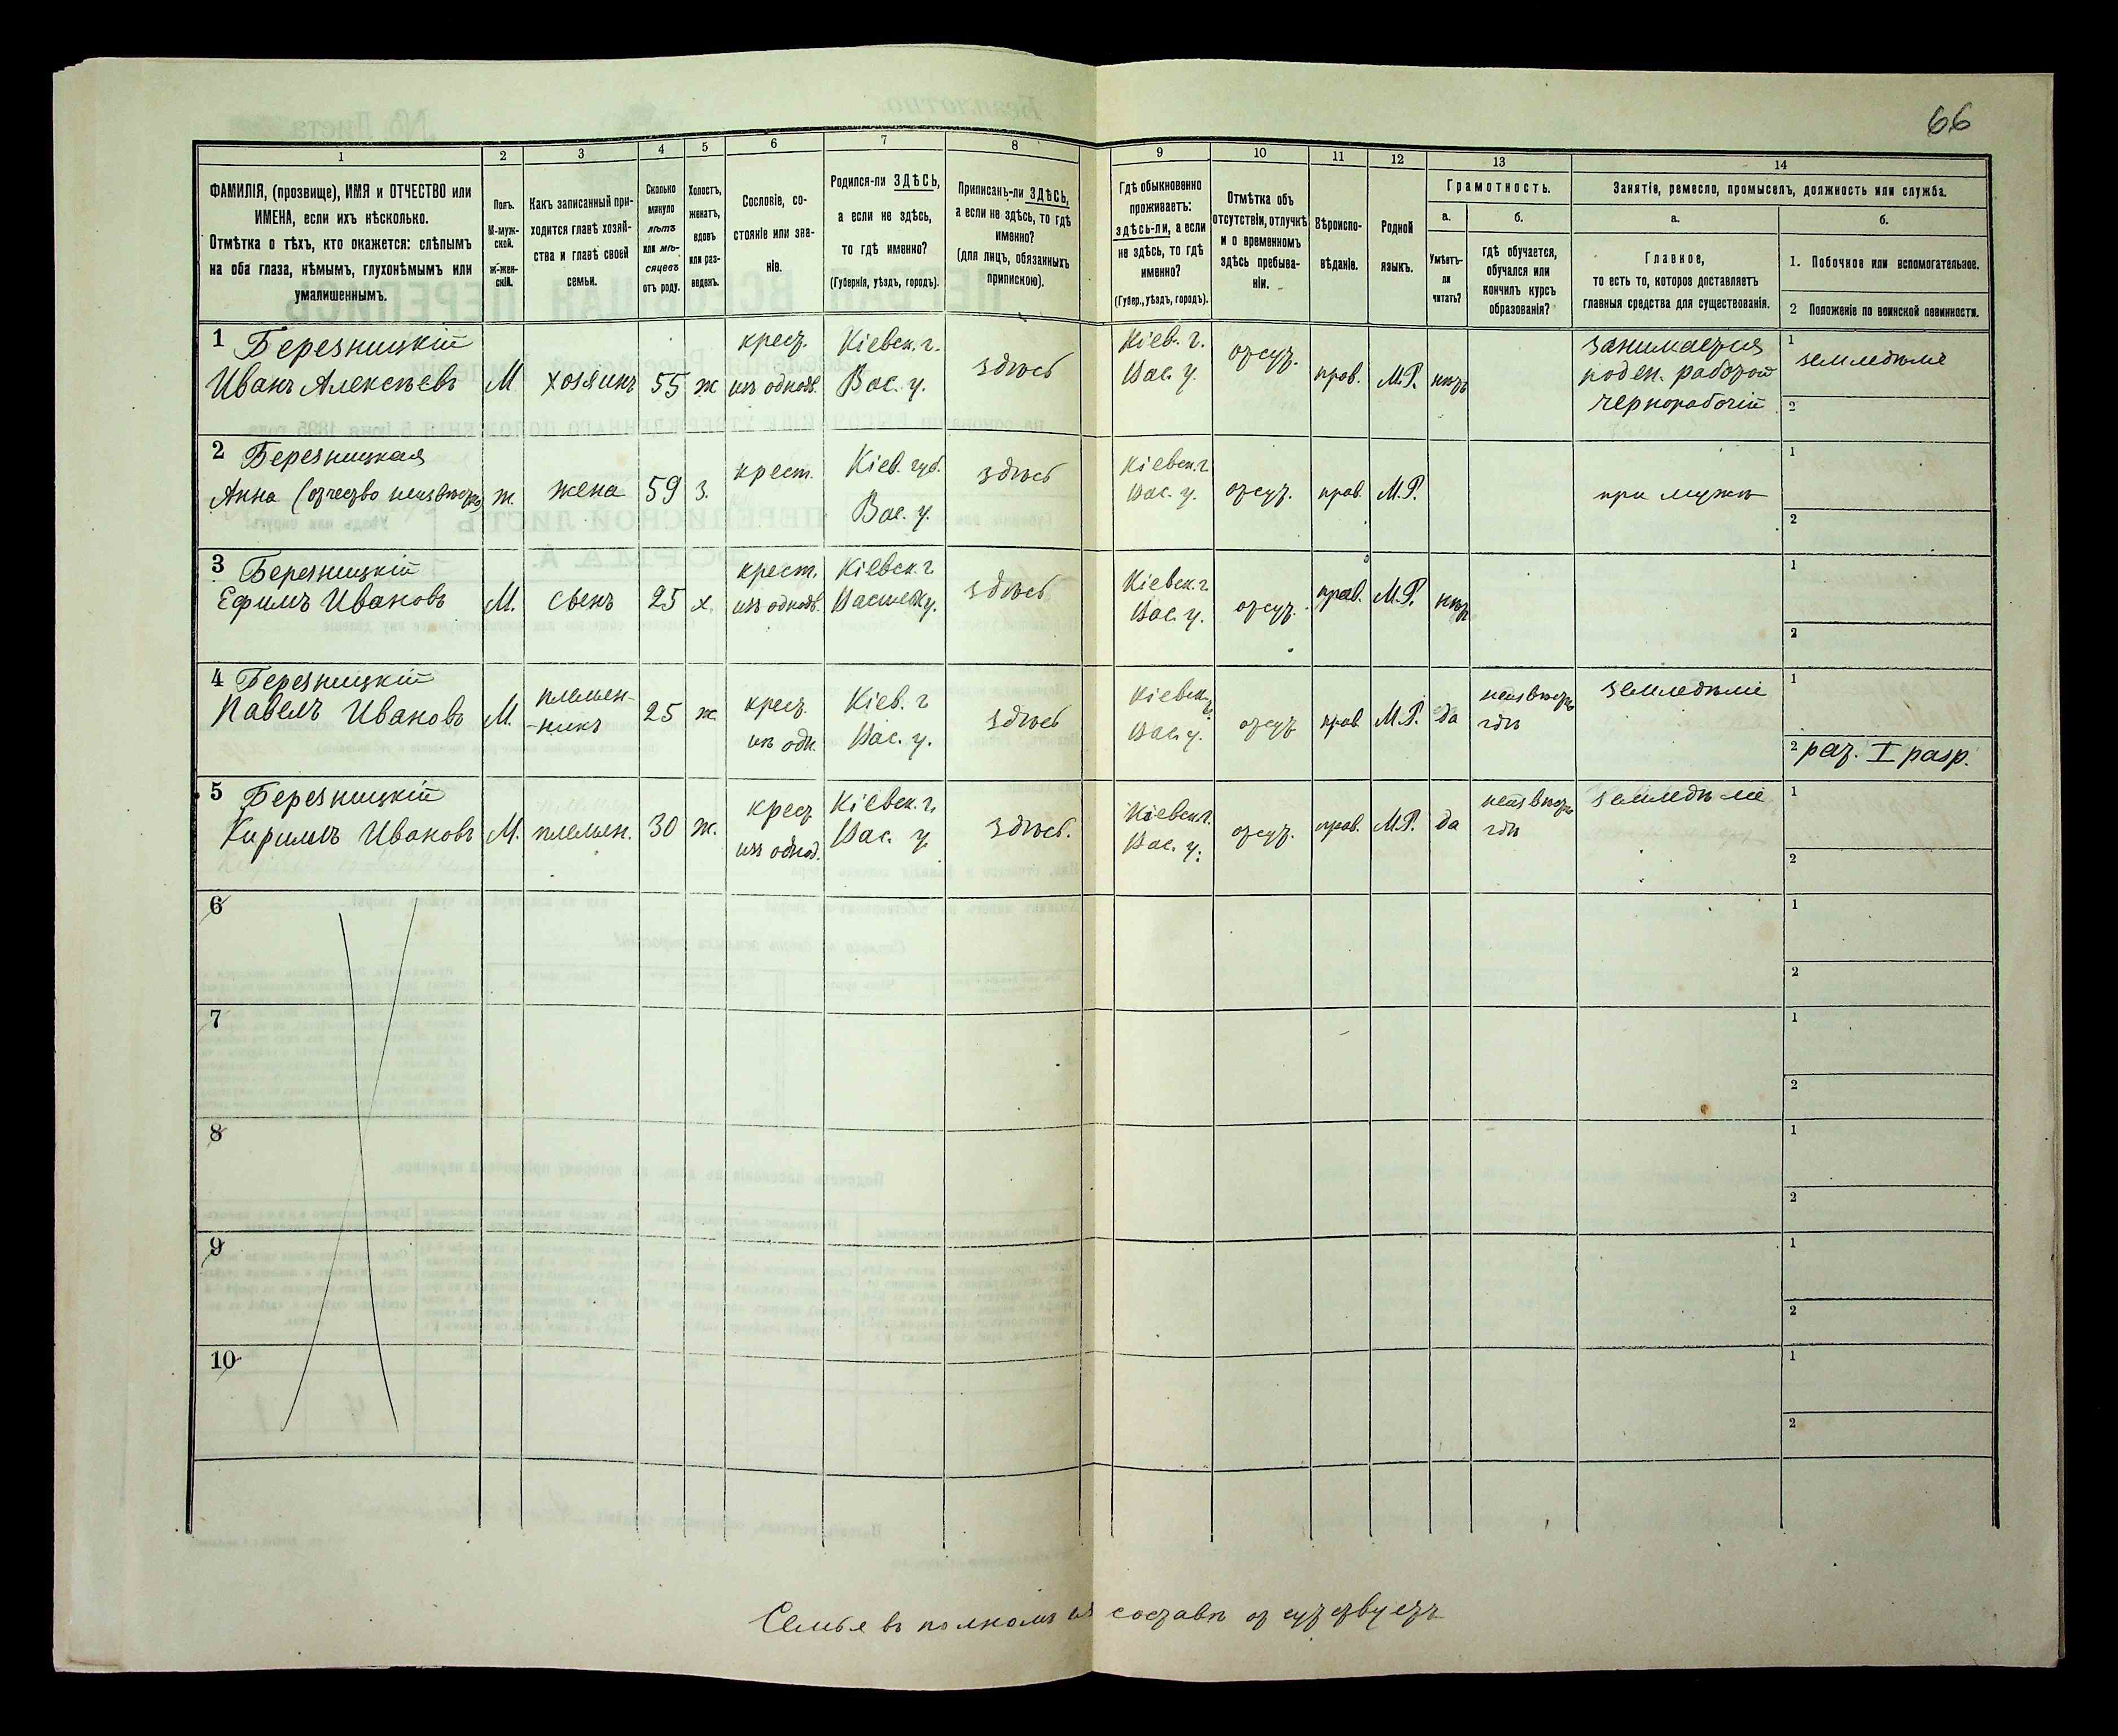 66
1 2 3 4 5 6 7 8 9 10 11 12 13 14
ФАМИЛІЯ, (прозвище), ИМЯ и ОТЧЕСТВО или
ИМЕНА, если ихъ нѣсколько.
Отмѣтка о тѣхъ, кто окажется: слѣпымъ
на оба глаза, нѣмымъ, глухонѣмымъ или
умалишеннымъ.
Полъ.
М-муж-
ской.
ж-жен-
скій.
Какъ записанный при-
ходится главѣ хозяй-
ства и главѣ своей
семьи.
Сколько
минуло
лѣтъ
или мѣ-
сяцевъ
отъ роду.
Холостъ,
женатъ,
вдовъ
или раз-
веденъ.
Сословіе, со-
стояніе или зва-
ніе.
Родился-ли ЗДѢСЬ,
а если не здѣсь,
то гдѣ именно?
(Губернія, уѣздъ, городъ).
Приписанъ-ли ЗДѢСЬ,
а если не здѣсь, то гдѣ
именно?
(для лицъ, обязанныхъ
припискою).
Гдѣ обыкновенно
проживаетъ:
здѣсь-ли, а если
не здѣсь, то гдѣ
именно?
(Губер., уѣздъ, городъ).
Отмѣтка объ
отсутствіи, отлучкѣ
и о временномъ
здѣсь пребыва-
ніи.
Вѣроиспо-
вѣданіе.
Родной
языкъ.
Грамотность.
а.
Умѣетъ-
ли
читать?
б.
гдѣ обучается,
обучался или
кончилъ курсъ
образованія?
Занятіе, ремесло, промыселъ, должность или служба.
а.
Главное,
то есть то, которое доставляетъ
главныя средства для существованія.
б.
1. Побочное или вспомогательное.
2 Положеніе по воинской повинности.
1 Березницкій
Иванъ Алексѣевъ
М
хозяинъ
55
ж
крест.
изъ однодв.
Кіевск. г.
Вас. у.
здѣсь
Кіев. г.
Вас. у.
отсут.
прав.
М.Р.
нѣтъ
занимается
поден. работой
чернорабочій
1 земледѣліе
2
2 Березницкая
Анна (отчество неизвѣстно)
ж.
жена
59
з.
крест.
Кіев. губ.
Вас. у.
здѣсь
Кіевск. г.
Вас. у.
отсут.
прав.
М.Р.
при мужѣ
1
2
3 Березницкій
Ефимъ Ивановъ
М.
сынъ
25
х.
крест.
изъ однодв.
Кіевск. г.
здѣсь
Кіевск. г.
Вас. у.
отсут.
прав.
М.Р.
нѣт
1
2
4 Березницкій
Павелъ Ивановъ
М.
племен-
-никъ
25
ж.
крест.
из одн.
Кіев. г
Вас. у.
здѣсь
Кіевск. г.
Вас. у.
отсут
прав
М.Р.
да
неизвѣстно
гдѣ
земледѣліе
1
2 рат. I разр.
5 Березницкій
Кирилъ Ивановъ
М.
племян.
30
ж.
крест
изъ однод.
Кіевск. г.
Вас. у.
здѣсь.
Кіевск. г.
Вас. у.
отсут.
прав.
М.Р.
да
неизвѣстно
гдѣ
земледѣліе
1
2
6
1
2
7
1
2
8
1
2
9
1
2
10
1
2
Семья въ полномъ составѣ отсутствуетъ